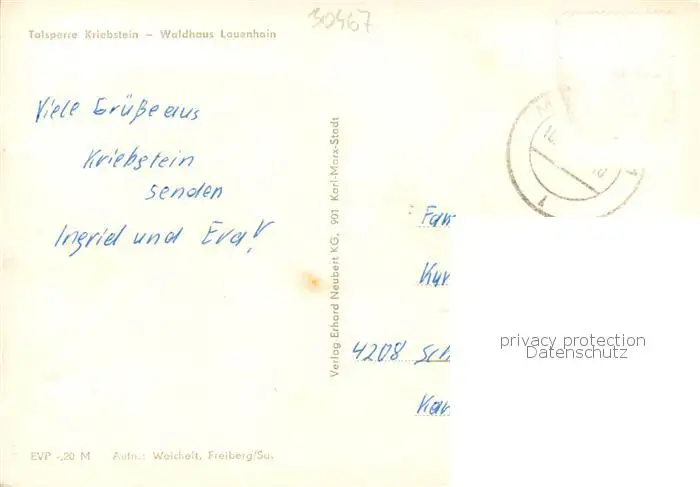 30467
Talsperre Kriebstein – Waldhaus Lauenhain
Viele Grüße aus
Kriebstein
senden
Ingrid und Eva!
Verlag Erhard Neubert KG, 901 Karl-Marx-Stadt
Fam
Kur
4208 Sch
Kar
privacy protection
Datenschutz
EVP -,20 M Aufn.: Weichelt, Freiberg/Sa.